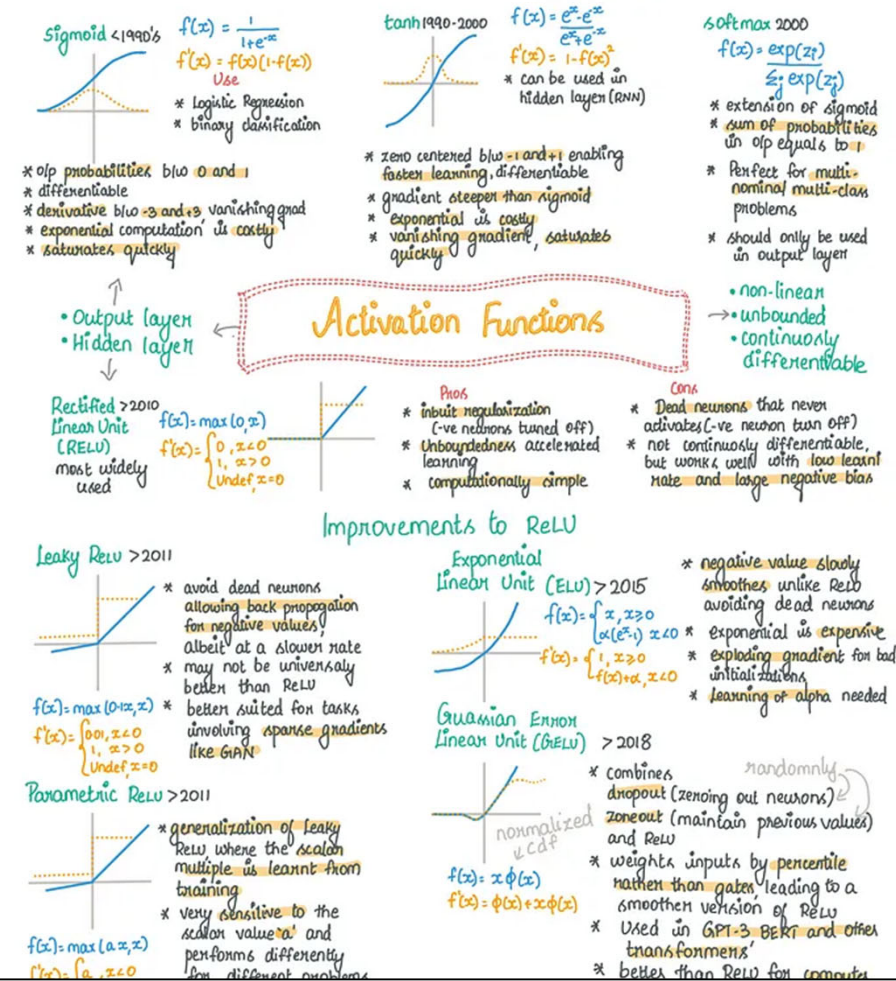 Sigmoid <1990's
f(x) = 1
1+e^-x
f'(x) = f(x)(1-f(x))
Use
* Logistic Regression
* binary classification
* o/p probabilities b/w 0 and 1
* differentiable
* derivative b/w -3 and +3 vanishing grad
* exponential computation is costly
* saturates quickly
tanh 1990-2000
f(x) = e^x-e^-x
e^x+e^-x
f'(x) = 1-f(x)^2
* can be used in
hidden layer (RNN)
* zero centered b/w -1 and +1 enabling
faster learning, differentiable
* gradient steeper than sigmoid
* exponential is costly
* vanishing gradient, saturates
quickly
softmax 2000
f(x) = exp(zi)
Σj exp(zj)
* extension of sigmoid
* sum of probabilities
in o/p equals to 1
* Perfect for multi-
nominal multi-class
problems
* should only be used
in output layer
Activation Functions
• Output layer
• Hidden layer
• non-linear
• unbounded
• continuosly
differentivable
Rectified >2010
Linear Unit
(RELU)
most widely
used
f(x)=max(0,x)
f'(x)={0, x<0
1, x>0
Undef, x=0
Pros
* inbuit regularization
(-ve neurons tuned off)
* Unboundedness accelerated
learning
* computationally simple
Cons
* Dead neurons that never
activates(-ve neuron turn off)
* not continuosly differentiable,
but works well with low learni
rate and large negative bias
Improvements to ReLU
Leaky Relu >2011
* avoid dead neurons
allowing back propogation
for negative values,
albeit at a slower rate
* may not be universaly
better than ReLU
* better suited for tasks
involving sparse gradients
like GAN
f(x)=max(0.1x,x)
f'(x)={0.01, x<0
1, x>0
Undef, x=0
Parametric Relu >2011
* generalization of Leaky
Relu where the scalar
multiple is learnt from
training
* very sensitive to the
scalar value 'a' and
performs differently
for different problems
f(x)=max(ax,x)
f'(x)={a, x<0
Exponential
Linear Unit (ELU) >2015
f(x)={x, x≥0
α(e^x-1) x<0
f'(x)={1, x≥0
f(x)+α, x<0
* negative value slowly
smoothes unlike Relu
avoiding dead neurons
* exponential is expensive
* exploding gradient for bad
initializations
* learning of alpha needed
Guassian Error
Linear Unit (GELU) >2018
normalized
cdf
f(x)= xΦ(x)
f'(x)=Φ(x)+xΦ(x)
randomnly
* combines
dropout (zeroing out neurons)
zoneout (maintain previous values)
and ReLU
* weights inputs by percentile
rather than gates, leading to a
smoother version of RELU
* Used in GPT-3 BERT and other
transformers'
* better than ReLU for computer